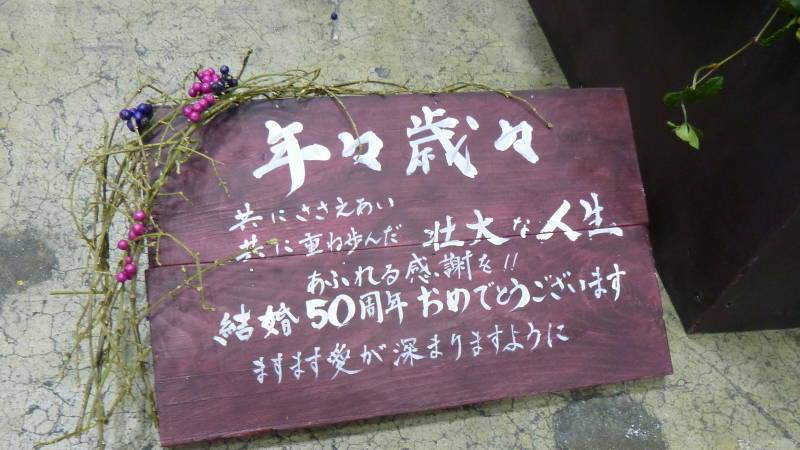 年々歳々
共にささえあい
共に重ね歩んだ 壮大な人生
あふれる感謝を!!
結婚50周年おめでとうございます
ますます愛が深まりますように